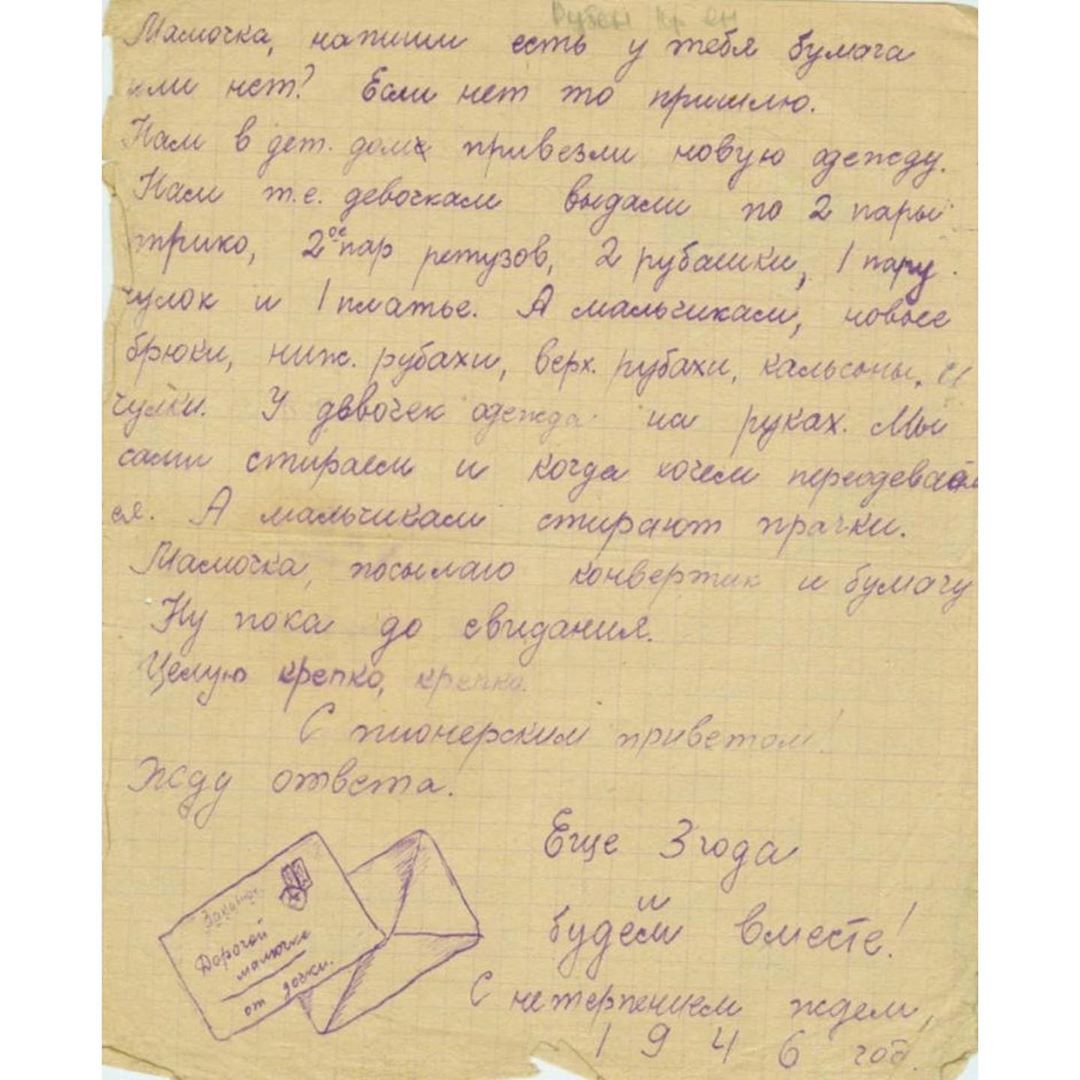 Мамочка, напиши есть у тебя бумага
или нет? Если нет то пришлю.
Нам в дет. домх привезли новую одежду.
Нам т.е. девочкам выдали по 2 пары
трико, 2ое пар ретузов, 2 рубашки, 1 пару
чулок и 1 платье. А мальчикам, новые
брюки, ниж. рубахи, верх. рубахи, кальсоны, и
чулки. У девочек одежда на руках. Мы
сами стираем и когда хочем переодеваем
ся. А мальчикам стирают прачки.
Мамочка, посылаю конвертик и бумагу
Ну пока до свидания.
Целую крепко, крепко.
С пионерским приветом!
Жду ответа.
Еще 3 года
и
будем вместе!
С нетерпением ждем,
1946 год.
Заказное.
Дорогой
мамочке
от дочки.